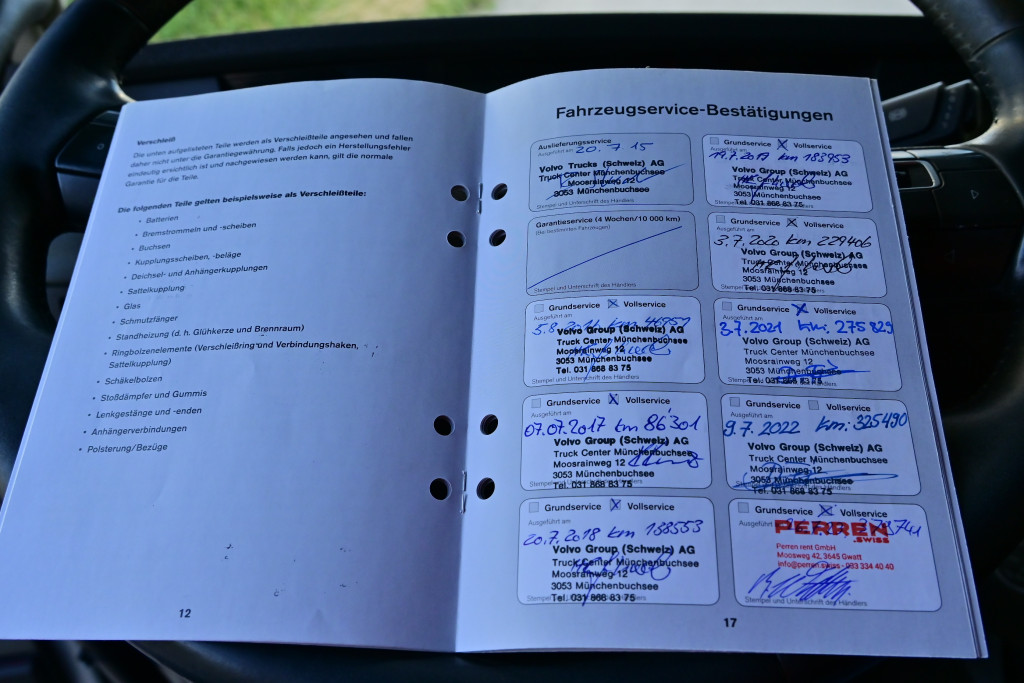 Verschleiß
Die unten aufgelisteten Teile werden als Verschleißteile angesehen und fallen
daher nicht unter die Garantiegewährung. Falls jedoch ein Herstellungsfehler
eindeutig ersichtlich ist und nachgewiesen werden kann, gilt die normale
Garantie für die Teile.
Die folgenden Teile gelten beispielsweise als Verschleißteile:
• Batterien
• Bremstrommeln und -scheiben
• Buchsen
• Kupplungsscheiben, -beläge
• Deichsel- und Anhängerkupplungen
• Sattelkupplung
• Glas
• Schmutzfänger
• Standheizung (d. h. Glühkerze und Brennraum)
• Ringbolzenelemente (Verschleißring und Verbindungshaken,
Sattelkupplung)
• Schäkelbolzen
• Stoßdämpfer und Gummis
• Lenkgestänge und -enden
• Anhängerverbindungen
• Polsterung/Bezüge
12
Fahrzeugservice-Bestätigungen
Auslieferungsservice
Ausgeführt am
20.7.15
Volvo Trucks (Schweiz) AG
Truck Center Münchenbuchsee
Moosrainweg
3053 Münchenbuchsee
Stempel und Unterschrift des Händlers
Garantieservice (4 Wochen/10 000 km)
(Bei bestimmten Fahrzeugen)
Ausgeführt am
Stempel und Unterschrift des Händlers
Grundservice Vollservice
Ausgeführt am
Volvo Group (Schweiz) AG
Truck Center Münchenbuchsee
Moosrainweg 12
3053 Münchenbuchsee
Tel. 031 868 83 75
Stempel und Unterschrift des Händlers
Grundservice Vollservice
Ausgeführt am
07.07.2017 km 86'301
Volvo Group (Schweiz) AG
Truck Center Münchenbuchsee
Moosrainweg 12
3053 Münchenbuchsee
Tel. 031 868 83 75
Grundservice Vollservice
Ausgeführt am
20.7.2018 km 138553
Volvo Group (Schweiz) AG
Truck Center Münchenbuchsee
Moosrainweg 12
3053 Münchenbuchsee
Tel. 031 868 83 75
Grundservice Vollservice
19.7.2019 km 183953
Volvo Group (Schweiz) AG
Truck Center Münchenbuchsee
Moosrainweg 12
3053 Münchenbuchsee
Tel. 031 868 83 75
Grundservice Vollservice
Ausgeführt am
3.7.2020 km 229406
Volvo Group (Schweiz) AG
Truck Center Münchenbuchsee
Moosrainweg 12
3053 Münchenbuchsee
Tel. 031 868 83 75
Grundservice Vollservice
Ausgeführt am
3.7.2021 km: 275829
Volvo Group (Schweiz) AG
Truck Center Münchenbuchsee
Moosrainweg 12
3053 Münchenbuchsee
Tel. 031 868 83 75
Grundservice Vollservice
Ausgeführt am
9.7.2022 km: 325490
Volvo Group (Schweiz) AG
Truck Center Münchenbuchsee
Moosrainweg 12
3053 Münchenbuchsee
Tel. 031 868 83 75
Grundservice Vollservice
Ausgeführt
PERREN
.SWISS
Perren rent GmbH
Moosweg 42, 3645 Gwatt
info@perren.swiss - 033 334 40 40
Stempel und Unterschrift des Händlers
17